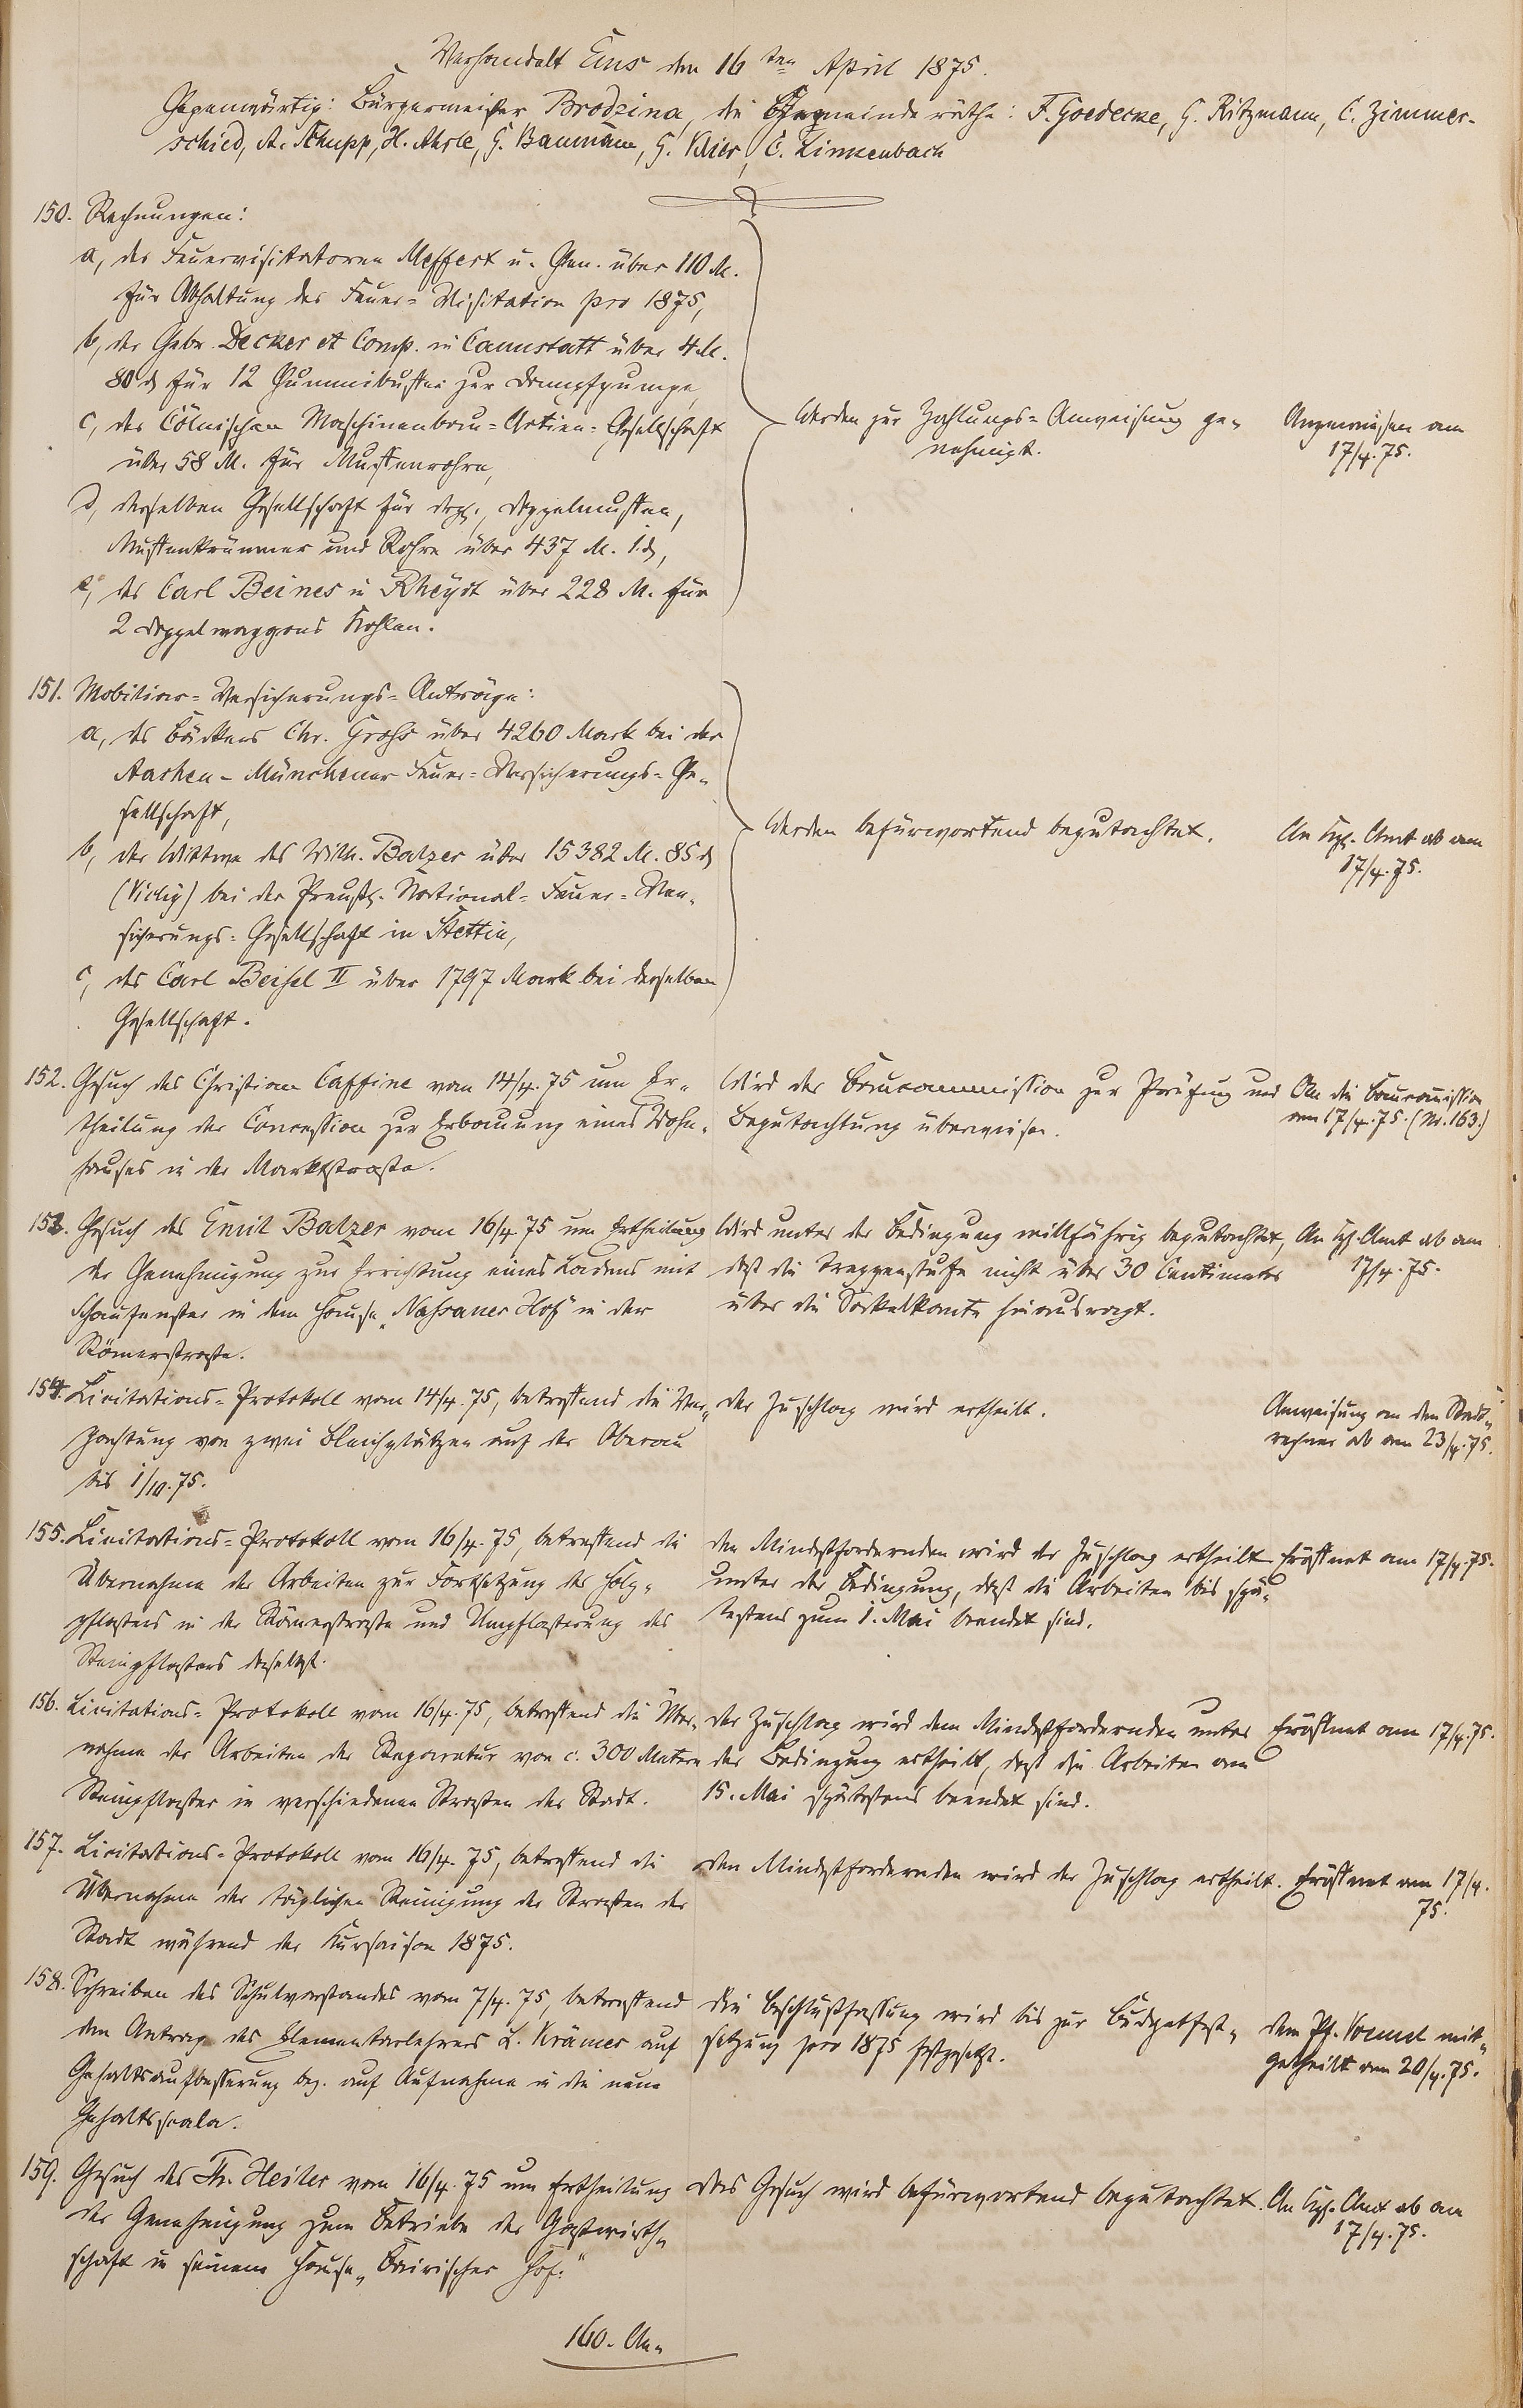 Verhandelt Ems den 16ten April 1875.
Gegenwärtig: Bürgermeister Brodzina, die Gemeinderäthe: F. Goedecke, G. Ritzmann, C. Zimmer-
schied, A. Schupp, H. Ahrle, G. Baumann, G. Kaier, C. Linkenbach
150. Rechnungen:
a, der Feuervisitatoren Meffert u. Gen. über 110 M.
für Abhaltung der Feuer-Visitation pro 1875,
b, der Gebr. Decker et Comp. in Cannstatt über 4 M.
80 ₰ für 12 Gummibuffer zur Dampfpumpe,
c, der Cölnischen Maschinenbau-Actien-Gesellschaft
über 58 M. für Muffenrohre,
d, derselben Gesellschaft für dergl., Doppelmuffen,
Muffenkrümmer und Rohre über 437 M. 1 ₰,
e, des Carl Beines in Rheydt über 228 M. für
2 Doppelwaggons Kohlen.
Werden zur Zahlungs-Anweisung ge-
nehmigt.
Angewiesen am
17/4. 75.
151. Mobiliar-Versicherungs-Anträge:
a, des Bäckers Chr. Grohs über 4260 Mark bei der
Aachen-Münchener Feuer-Versicherungs-Ge-
sellschaft,
b, der Wittwe des Wilh. Balzer über 15382 M. 85 ₰
(Vichy) bei der Preuß. National-Feuer-Ver-
sicherungs-Gesellschaft in Stettin,
c, des Carl Beisel II über 1797 Mark bei derselben
Gesellschaft.
Werden befürwortend begutachtet.
An Kgl. Amt ab am
17/4. 75.
152. Gesuch des Christian Caffine vom 14/4. 75 um Er-
theilung der Concession zur Erbauung eines Wohn-
hauses in der Marktstraße.
Wird der Baucommission zur Prüfung und
Begutachtung überwiesen.
An die Baucommission
am 17/4. 75. (Nr. 163.)
153. Gesuch des Emil Balzer vom 16/4 75 um Ertheilung
der Genehmigung zur Errichtung eines Ladens mit
Schaufenster in dem Hause „Nassauer Hof" in der
Römerstraße.
Wird unter der Bedingung willfährig begutachtet,
daß die Treppenstufe nicht über 30 Centimeter
über die Sockelkante hinausragt.
An Kgl. Amt ab am
17/4. 75.
154. Licitations-Protokoll vom 14/4. 75, betreffend die Ver-
pachtung von zwei Bleichplätzen auf der Oberau
bis 1/10. 75.
Der Zuschlag wird ertheilt.
Anweisung an den Stadt-
rechner ab am 23/4. 75.
155. Licitations-Protokoll vom 16/4. 75, betreffend die
Übernahme der Arbeiten zur Fortsetzung des Holz-
pflasters in der Römerstraße und Umpflasterung des
Steinpflasters daselbst.
Den Mindestfordernden wird der Zuschlag ertheilt
unter der Bedingung, daß die Arbeiten bis spä-
testens zum 1. Mai beendet sind.
Eröffnet am 17/4. 75.
156. Licitations-Protokoll vom 16/4. 75, betreffend die Über-
nahme der Arbeiten der Reparatur von c. 300 Metern
Steinpflaster in verschiedenen Straßen der Stadt.
Der Zuschlag wird dem Mindestfordernden unter
der Bedingung ertheilt, daß die Arbeiten am
15. Mai spätestens beendet sind.
Eröffnet am 17/4. 75.
157. Licitations-Protokoll vom 16/4. 75, betreffend die
Übernahme der täglichen Reinigung der Straßen der
Stadt während der Kursaison 1875.
Den Mindestfordernden wird der Zuschlag ertheilt.
Eröffnet am 17/4.
75.
158. Schreiben des Schulvorstandes vom 7/4. 75, betreffend
den Antrag des Elementarlehrers L. Krämer auf
Gehaltsaufbesserung bez. auf Aufnahme in die neue
Gehaltsscala.
Die Beschlußfassung wird bis zur Budgetfest-
setzung pro 1875 festgesetzt.
Dem Pf. Voemel mit-
getheilt am 20/4. 75.
159. Gesuch des Th. Heiler vom 16/4. 75 um Ertheilung
der Genehmigung zum Betriebe der Gastwirth-
schaft in seinem Hause „Bairischer Hof."
Das Gesuch wird befürwortend begutachtet.
An Kgl. Amt ab am
17/4. 75.
160. An-